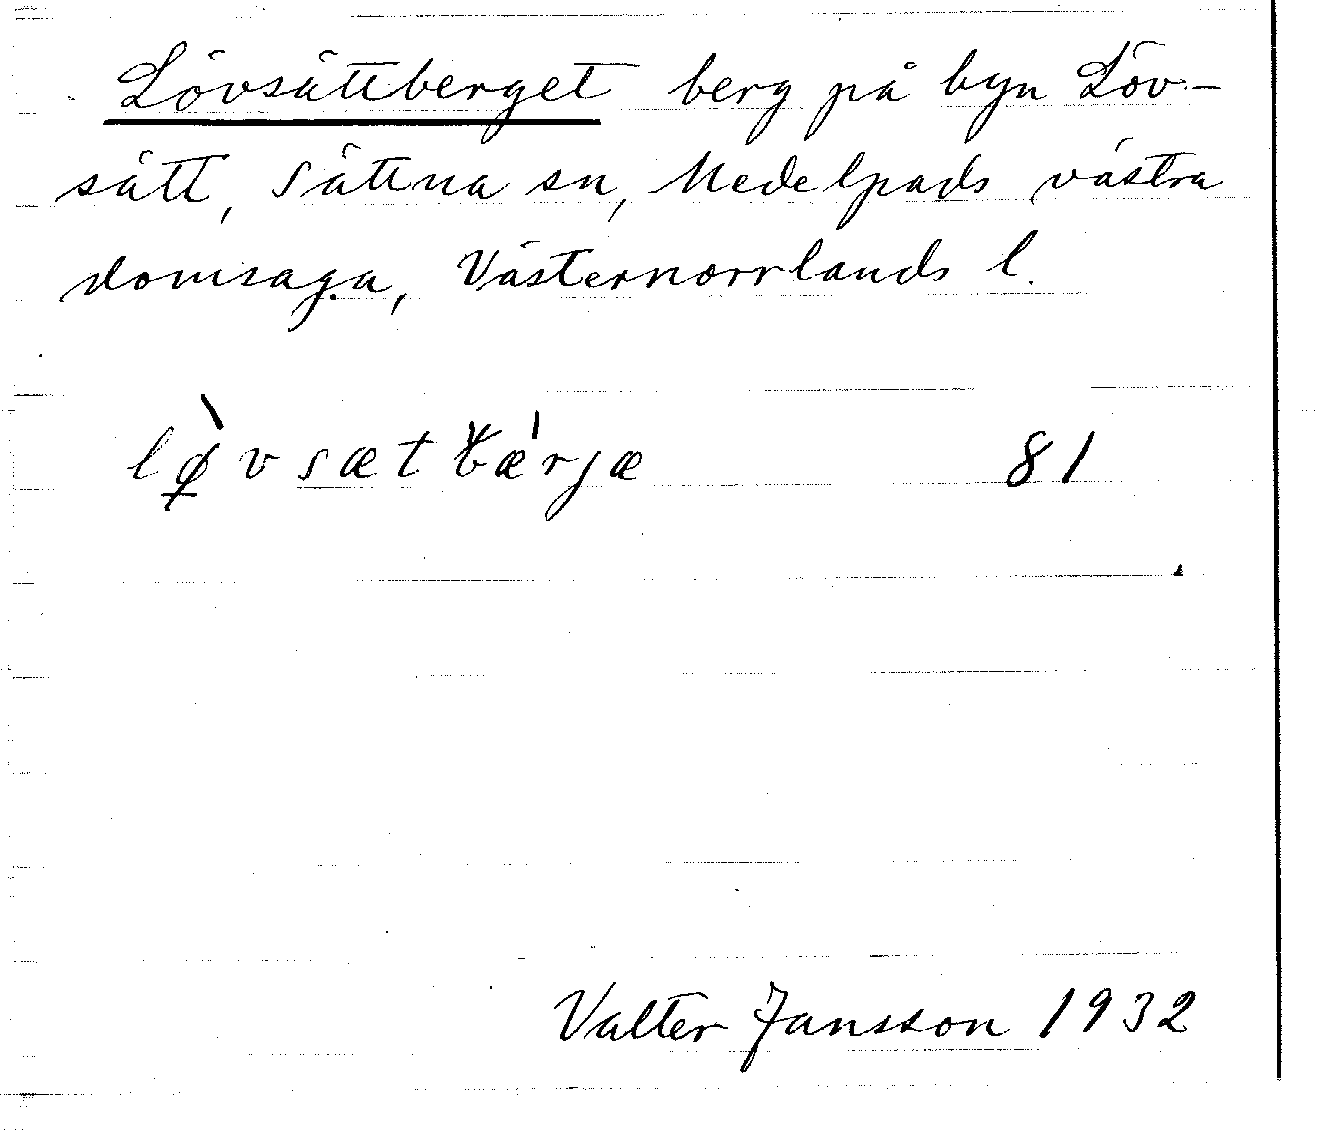 Lövsättberget berg på byn Löv-
sätt, Sättna sn, Medelpads västra
domsaga, Västernorrlands l.
lø̀vsætbæ̍rjæ 81
Valter Jansson 1932